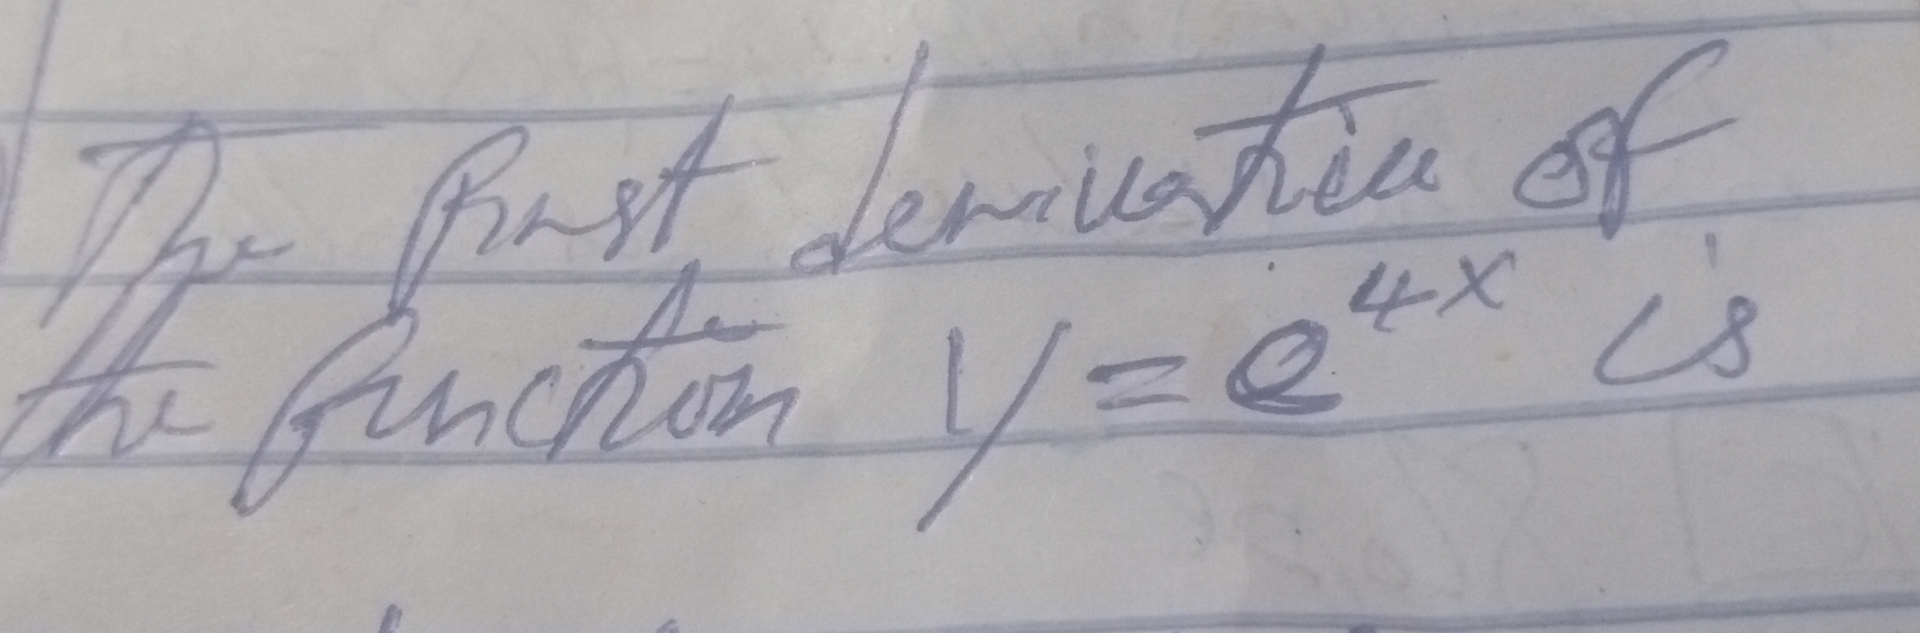 The first derivative of
the function y = e^4x is